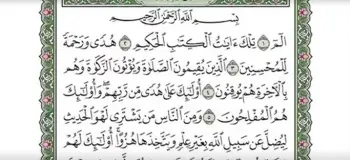 بِسْمِ اللَّهِ الرَّحْمَٰنِ الرَّحِيمِ
الٓمٓ ١ تِلْكَ ءَايَٰتُ الْكِتَٰبِ الْحَكِيمِ ٢ هُدًى وَرَحْمَةً
لِّلْمُحْسِنِينَ ٣ الَّذِينَ يُقِيمُونَ الصَّلَوٰةَ وَيُؤْتُونَ الزَّكَوٰةَ وَهُم
بِالْءَاخِرَةِ هُمْ يُوقِنُونَ ٤ أُو۟لَٰٓئِكَ عَلَىٰ هُدًى مِّن رَّبِّهِمْ وَأُو۟لَٰٓئِكَ
هُمُ الْمُفْلِحُونَ ٥ وَمِنَ النَّاسِ مَن يَشْتَرِى لَهْوَ الْحَدِيثِ
لِيُضِلَّ عَن سَبِيلِ اللَّهِ بِغَيْرِ عِلْمٍ وَيَتَّخِذَهَا هُزُوًا أُو۟لَٰٓئِكَ لَهُمْ